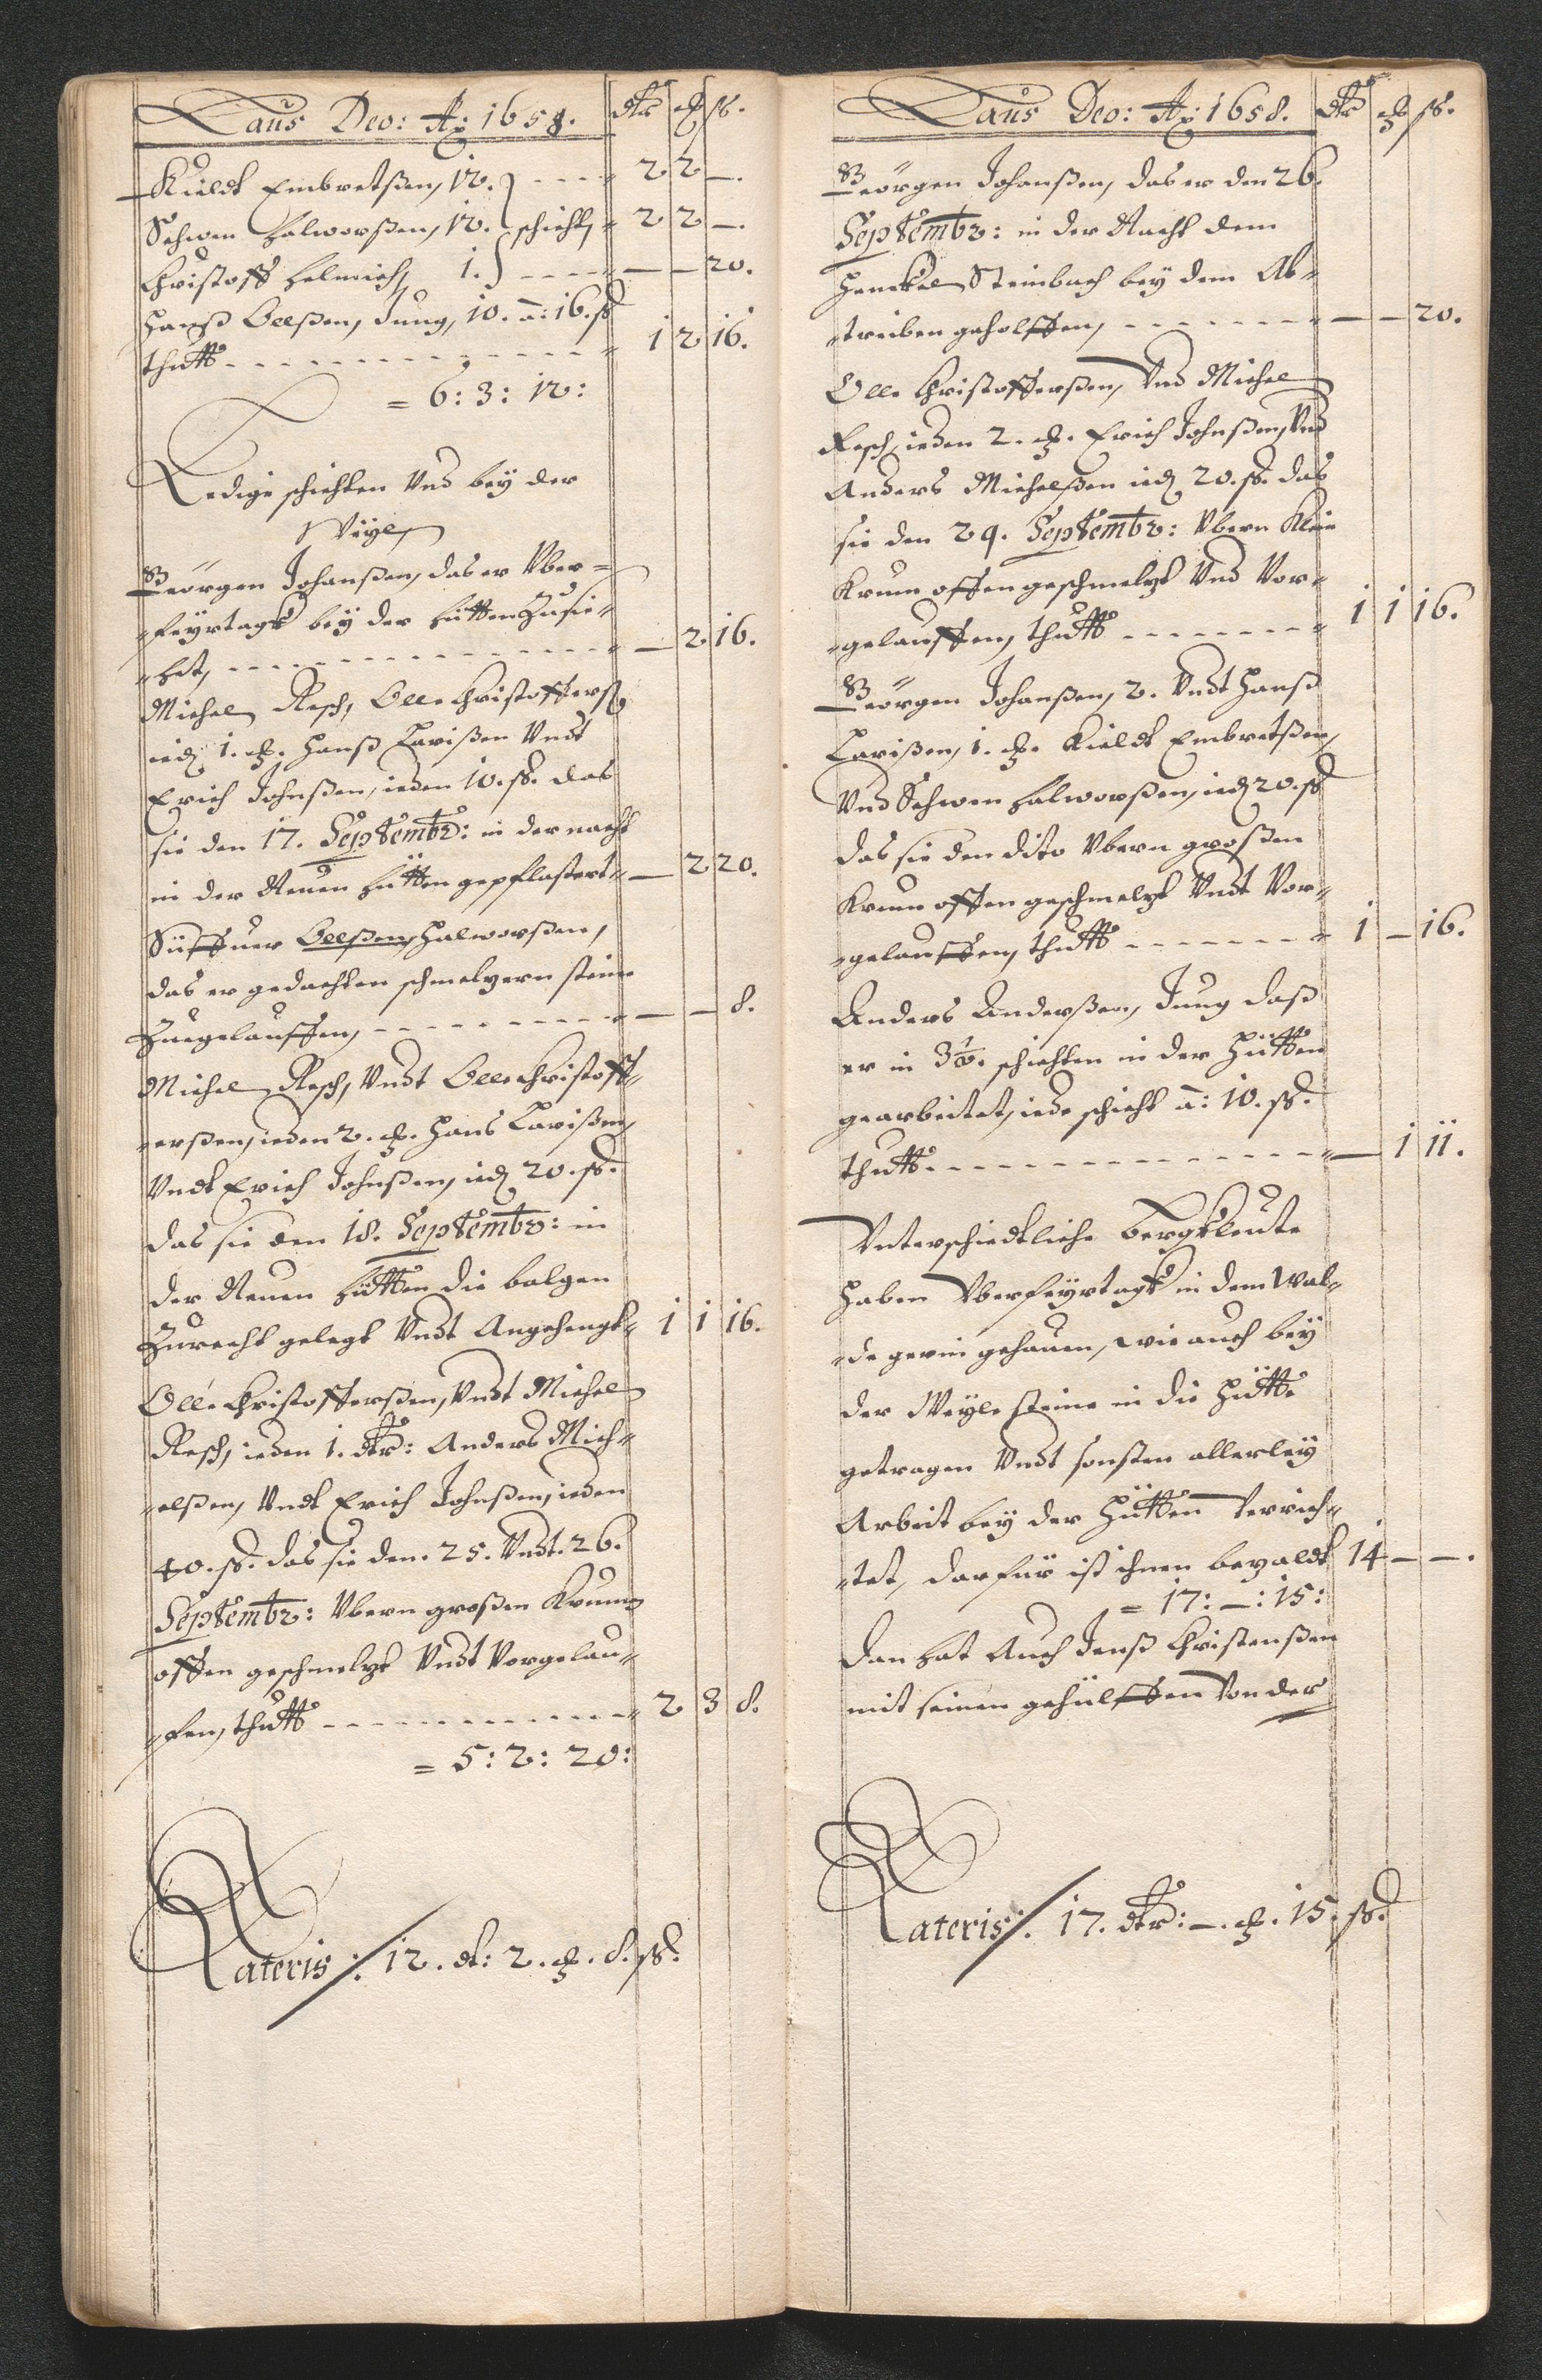 Laus Deo: Aọ 1658. dlr ọrt ß.
Kieldt Embretßen, 12. 2 2 –.
Schwen Halworßen, 12. schicht, 2 2 –.
Christoff Helmich, 1. – – 20.
Hanß Oelßen, Jung, 10. à: 16. ß
thutt 1 2 16.
= 6: 3: 12:
Ledige schichten Und bey der
Weyle
Geörgen Johanßen, das er Uber-
feyrtagk bey der hütten Zusie-
het, – 2 16.
Michel Resch, Olle Christofferß
ied 1. ort. Hanß Larißen Undt
Erich Johnßen, ieden 10. ß. das
sie den 17. Septembr: in der nacht
in der Neuen hütten gepflastert – 2 20.
Süffuer Oelßen, Halworßen,
das er gedachten schmelzern steine
Zuegelauffen, – – 8.
Michel Resch, Undt Olle Christoff-
erßen, ieden 2. ort. Hans Larißen,
Undt Erich Johnßen, ied 20. ß.
das sie den 18. Septembr: in
der Neuen hütten die balgen
Zurecht gelegt Undt Angehengt 1 1 16.
Olle Christofferßen, Undt Michel
Resch, ieden 1. dlr: Anders Mich-
elßen, Undt Erich Johnßen, ieden
40. ß. das sie den 25. Undt. 26.
Septembr: Ubern großen Krum
offen geschmelzt Undt Vorgelau-
fen, thutt 2 3 8.
= 5: 2: 20:
Lateris: 12. dl: 2. ort. 8. ß.
Laus Deo: Aọ 1658. dlr ort ß.
Geörgen Johanßen, das er den 26.
Septembr: in der Nacht dem
Henckel Steinbach bey dem Ab-
treiben geholffen, – – 20.
Olle Christofferßen, Und Michel
Resch, ieden 2. ort. Erich Johnßen, Und
Anders Michelßen ied 20. ß. das
sie den 29. Septembr: Ubern Klein
Krum offen geschmelzt Und Vor-
gelauffen, thutt 1 1 16.
Geörgen Johanßen, 2. Undt Hanß
Larißen, 1. ort. Kieldt Embretßen,
Und Schwen Halworßen, ied 20. ß
das sie den dito Ubern großen
Krum offen geschmelzt Undt Vor-
gelauffen, thutt 1 – 16.
Anders Anderßen, Jung daß
er in 3½. schichten in der Hütten
gearbeitet, iede schicht à: 10. ß.
thutt – 1 11.
Unterschiedtliche Bergkleute
haben Uberfeyrtagk in dem Wal-
de gerin gehauen, wie auch bey
der Weyle steine in die Hütte
getragen Undt sonsten allerley
Arbeit bey der Hütten Verrich-
tet, darfür ist ihnen bezaldt 14 – –.
= 17: –: 15:
Dan hat Auch Jenß Christenßen
mit seinen gehülffen Von der
Lateris: 17. dlr: –. ort. 15. ß.